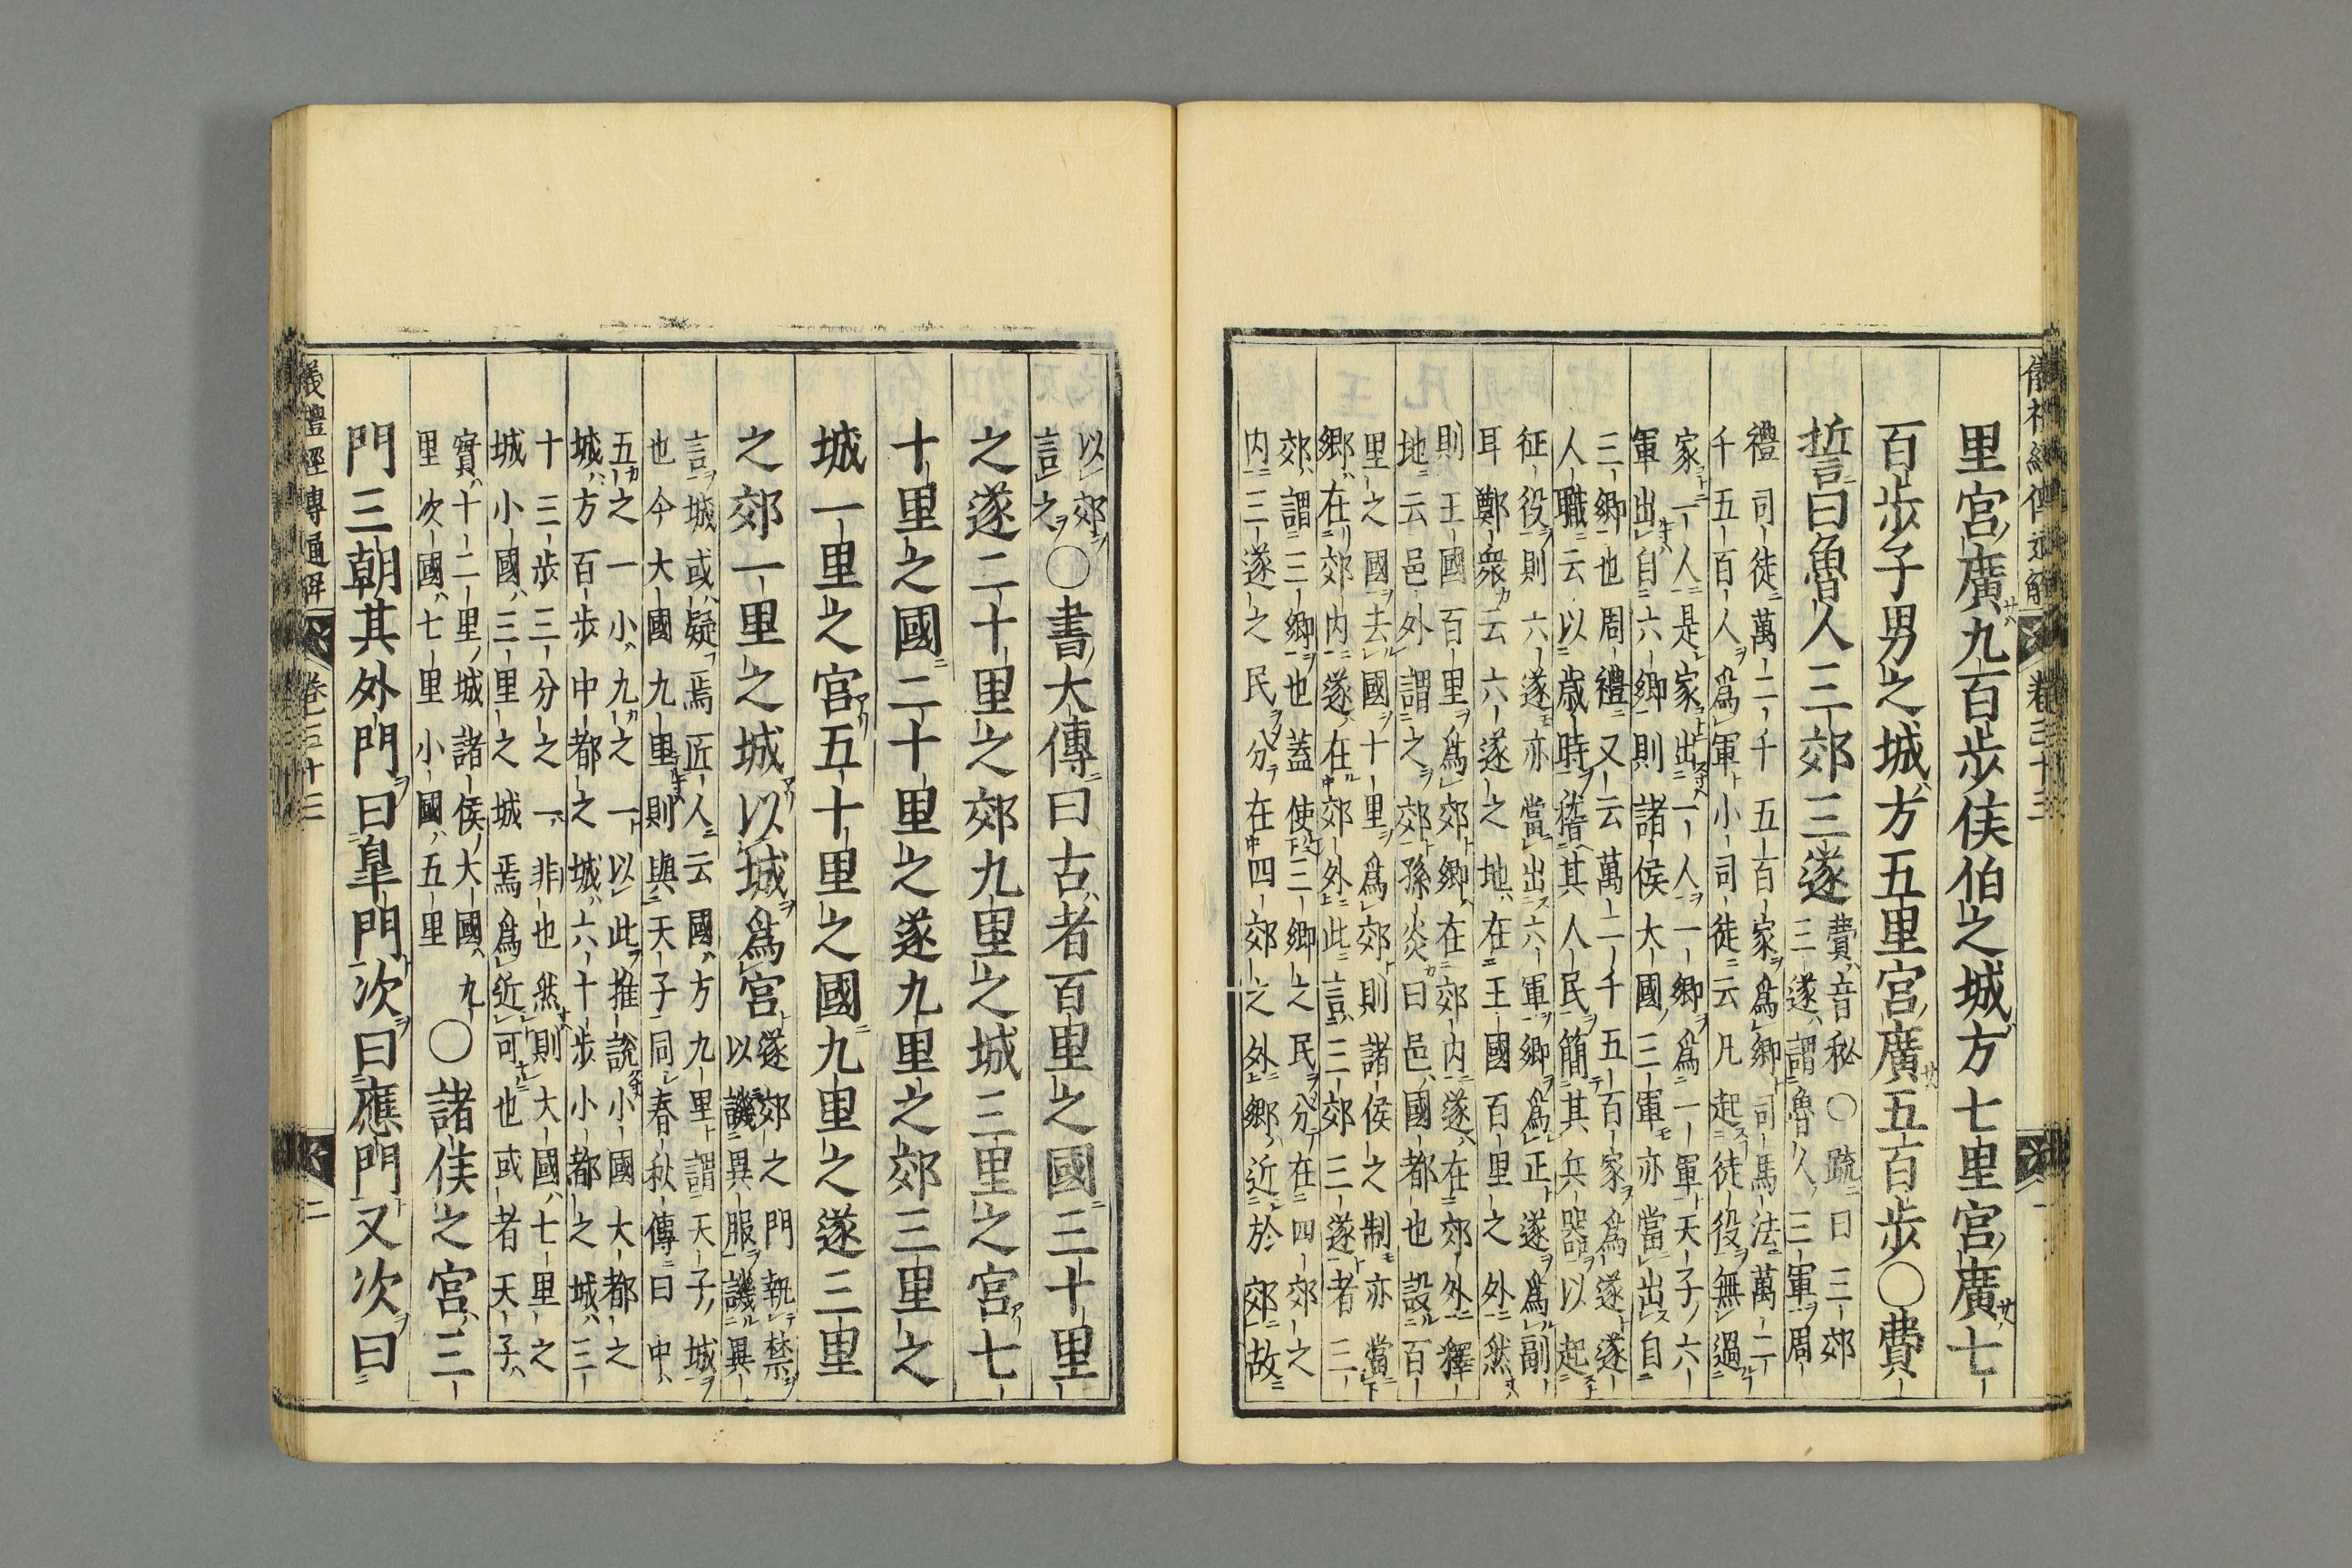 里宮廣九百歩侯伯之城方七里宮廣七
百歩子男之城方五里宮廣五百歩○費
誓曰魯人三郊三遂
費音秘○疏曰三郊
三遂謂魯人三軍周
禮司徒萬二千五百家爲鄉司馬法萬二
千五百人爲軍小司徒云凡起徒役無過
家一人是家出一人一鄉爲一軍天子六
軍出自六鄉則諸侯大國三軍亦當出自
三鄉也周禮又云萬二千五百家爲遂遂
人職云以歲時稽其人民簡其兵器以起
征役則六遂亦當出六軍鄉爲正遂爲副
耳鄭衆云六遂之地在王國百里之外然
則王國百里爲郊鄉在郊内遂在郊外釋
地云邑外謂之郊孫炎曰邑國都也設百
里之國去國十里爲郊則諸侯之制亦當
鄉在郊内遂在郊外此言三郊三遂者三
郊謂三鄉也蓋使三鄉之民分在四郊之
内三遂之民分在四郊之外鄉近於郊故
以郊
言之
○書大傳曰古者百里之國三十里
之遂二十里之郊九里之城三里之宮七
十里之國二十里之遂九里之郊三里之
城一里之宮五十里之國九里之遂三里
之郊一里之城以城爲宮
遂郊之門執禁
以譏異服譏異
言城或疑焉匠人云國方九里謂天子城
也今大國九里則與天子同春秋傳曰中
五之一小九之一以此推說小國大都之
城方百步中都之城六十步小都之城三
十三步三分之一非也然則大國七里之
城小國三里之城焉爲近可也或者天子
實十二里城諸侯大國九
里次國七里小國五里
○諸侯之宮三
門三朝其外門曰皐門次曰應門又次曰
儀禮經傳通解
卷三十三
一
儀禮經傳通解
卷三十三
二